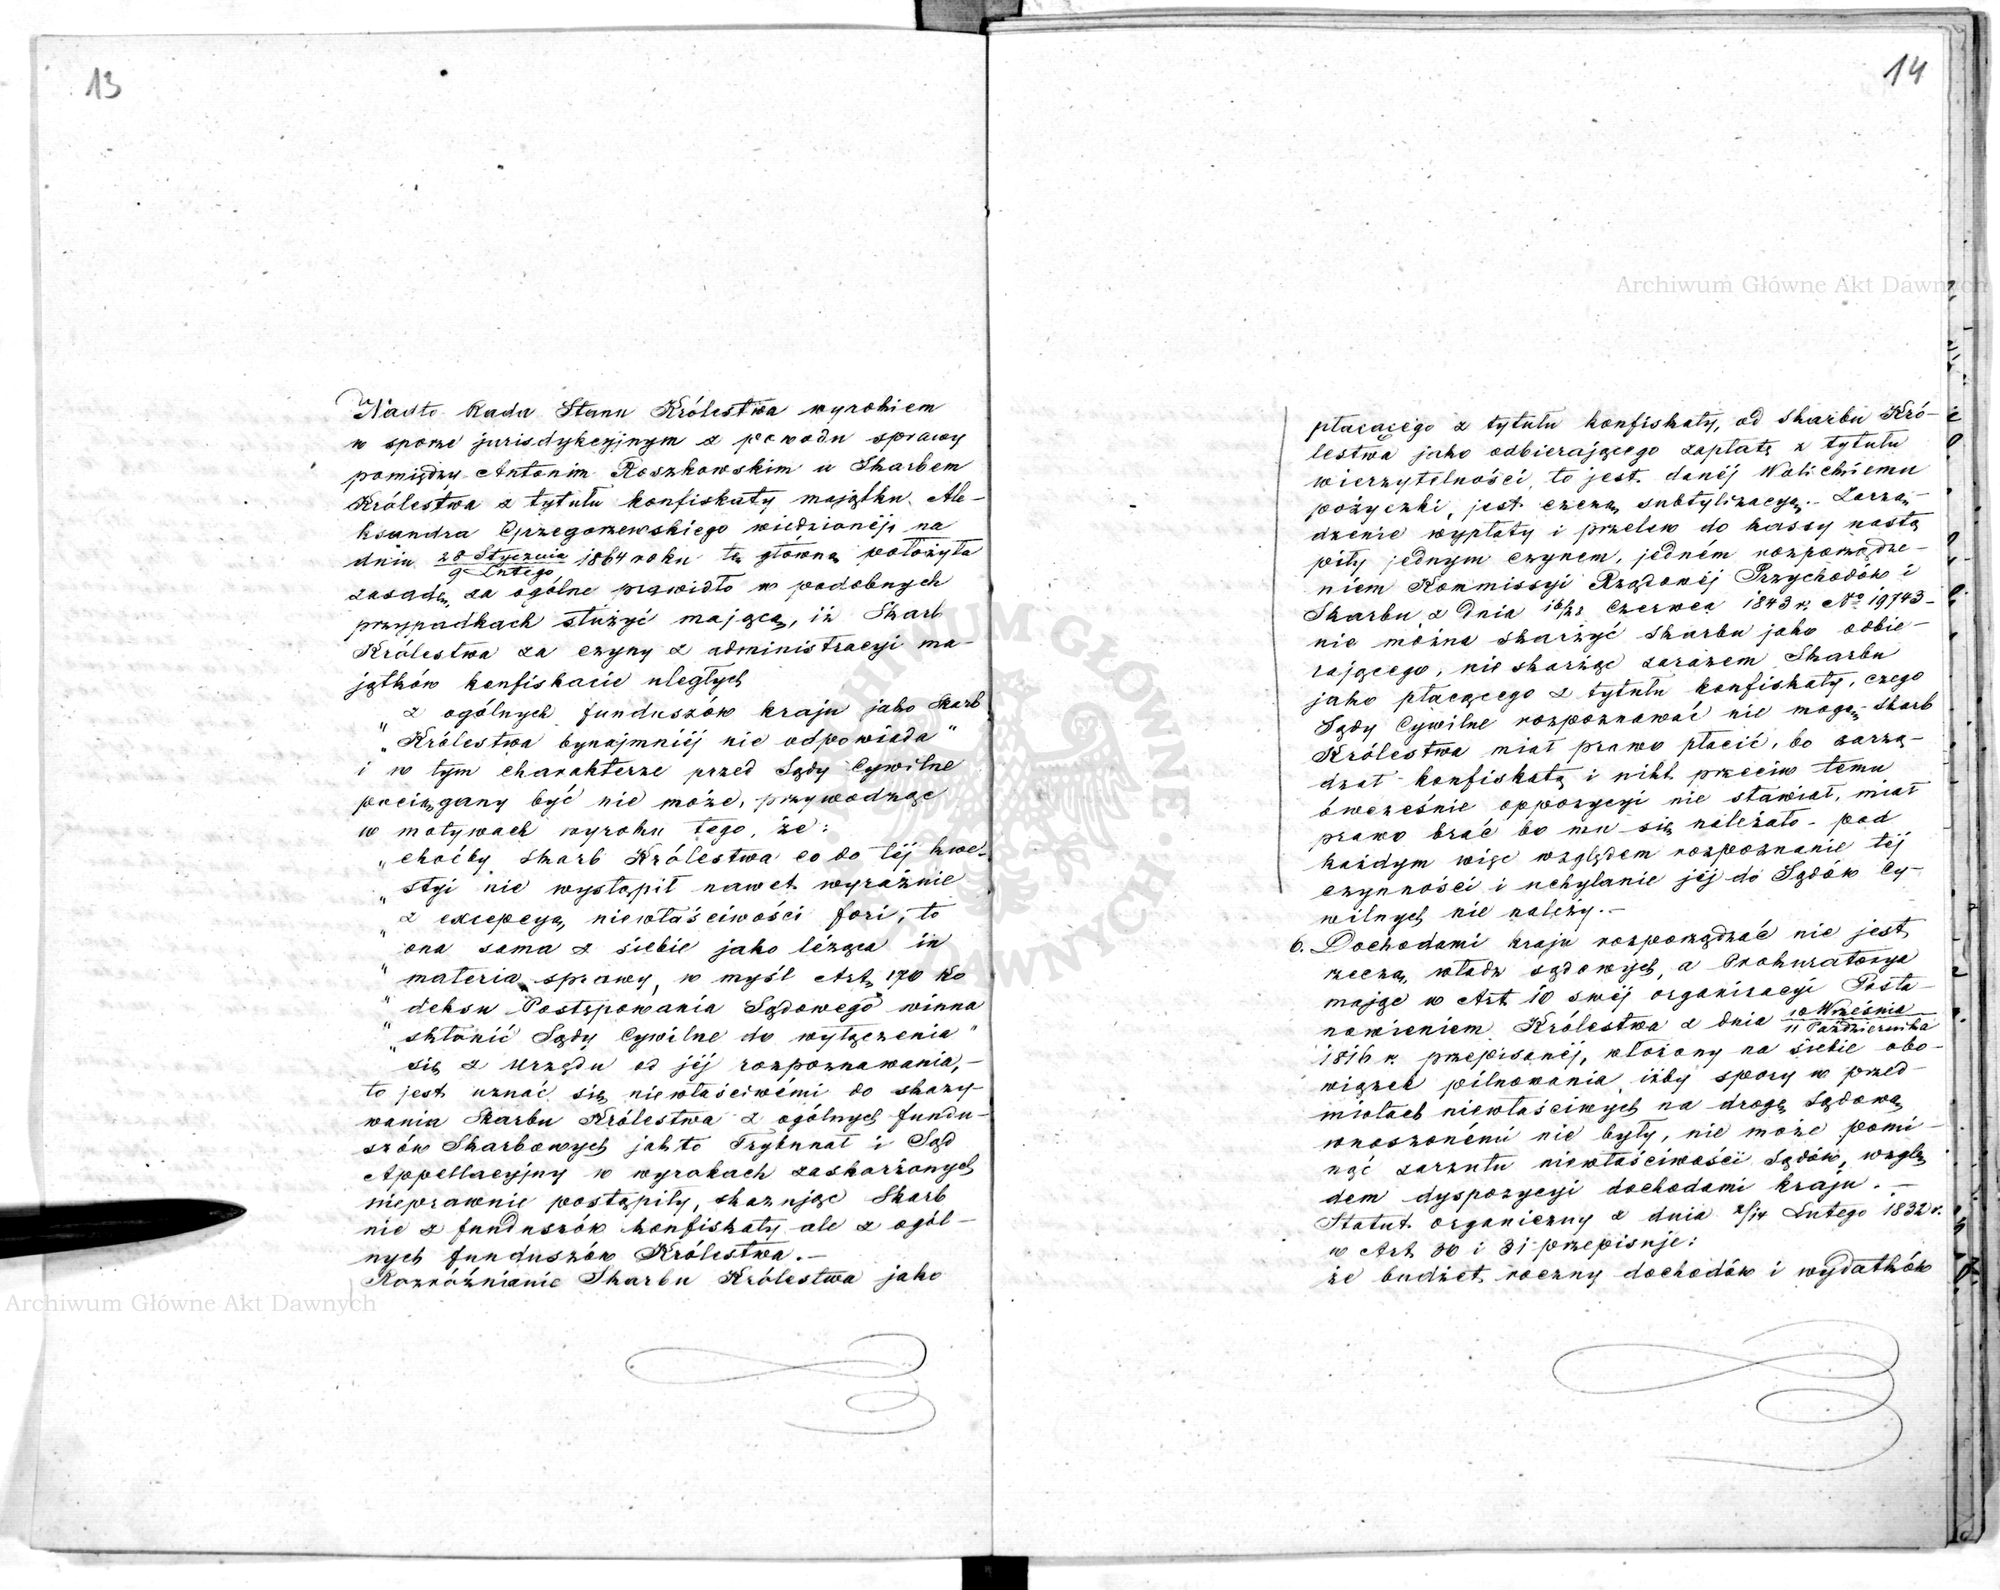 13
Nadto Rada Stanu Królestwa wyrokiem
w sporze jurisdykcyjnym z powodu sprawy
pomiędzy Antonim Roszkowskim a Skarbem
Królestwa z tytułu konfiskaty majątku Ale-
ksandra Grzegorzewskiego wiedzionéj, na
dniu 28 Stycznia/9 Lutego 1864 roku tę główną położyła
zasadę, za ogólne prawidło w podobnych
przypadkach służyć mającą, iż Skarb
Królestwa za czyny z administracyi ma-
jątków konfiskacie uległych
„ z ogólnych funduszów kraju jako Skarb
„ Królestwa bynajmniéj nie odpowiada"
i w tym charakterze przed Sądy Cywilne
pociągany być nie może, przywodząc
w motywach wyroku tego, że:
„ choćby Skarb Królestwa co do téj kwe-
„ styi nie wystąpił nawet wyraźnie
„ z excepcyą niewłaściwości fori, to
„ ona sama z siebie jako leżąca in
„ materia sprawy, w myśl Art. 170 Ko
„ deksu Postępowania Sądowego winna
„ skłonić Sądy Cywilne do wyłączenia "
się z Urzędu od jéj rozpoznawania,-
to jest uznać się niewłaściwémi do skazy-
wania Skarbu Królestwa z ogólnych fundu-
szów Skarbowych jak to Trybunał i Sąd
Appellacyjny w wyrokach zaskarżonych
nieprawnie postąpiły, skazując Skarb
nie z funduszów konfiskaty ale z ogól-
nych funduszów Królestwa.-
Rozróżnianie Skarbu Królestwa jako
14
płacącego z tytułu konfiskaty, od Skarbu Kró-
lestwa jako odbierającego zapłatę z tytułu
wierzytelności, to jest danéj Walickiemu
pożyczki, jest czczą subtylizacyą.- Zarzą-
dzenie wypłaty i przelew do kassy nastą
piły jednym czynem, jedném rozporządze-
niem Kommissyi Rządowéj Przychodów i
Skarbu z dnia 16/28 Czerwca 1843 r. No 19743-
nie można skarżyć Skarbu jako odbie-
rającego, nie skarżąc zarazem Skarbu
jako płacącego z tytułu konfiskaty, czego
Sądy Cywilne rozpoznawać nie mogą,- Skarb
Królestwa miał prawo płacić, bo zarzą-
dzał konfiskatą i nikt przeciw temu
ówcześnie oppozycyi nie stawiał, miał
prawo brać bo mu się należało - pod
każdym więc względem rozpoznanie téj
czynności i uchylanie jéj do Sądów Cy-
wilnych nie należy.-
6. Dochodami kraju rozporządzać nie jest
rzeczą władz sądowych, a Prokuratorya
mając w Art. 10 swéj organizacyi Posta-
nowieniem Królestwa z dnia 10 Września/11 Października
1816 r. przepisanéj, włożony na siebie obo-
wiązek pilnowania iżby spory w przed-
miotach niewłaściwych na drogę Sądową
wnoszonémi nie były, nie może pomi-
nąć zarzutu niewłaściwości Sądów, wzglę
dem dyspozycyi dochodami kraju.-
Statut organiczny z dnia 2/14 Lutego 1832 r.
w Art. 30 i 31 przepisuje:
że budżet roczny dochodów i wydatków
Archiwum Główne Akt Dawnych
Archiwum Główne Akt Dawnych
ARCHIWUM GŁÓWNE AKT DAWNYCH